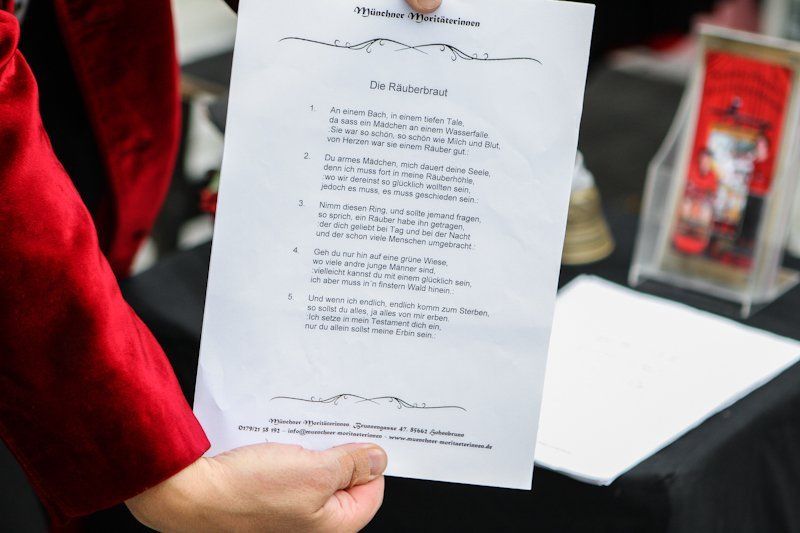 Münchner Moritäterinnen
Die Räuberbraut
1. An einem Bach, in einem tiefen Tale,
da sass ein Mädchen an einem Wasserfalle.
:Sie war so schön, so schön wie Milch und Blut,
von Herzen war sie einem Räuber gut.:
2. Du armes Mädchen, mich dauert deine Seele,
denn ich muss fort in meine Räuberhöhle,
wo wir dereinst so glücklich wollten sein,
jedoch es muss, es muss geschieden sein.:
3. Nimm diesen Ring, und sollte jemand fragen,
so sprich, ein Räuber habe ihn getragen,
:der dich geliebt bei Tag und bei der Nacht
und der schon viele Menschen umgebracht.:
4. Geh du nur hin auf eine grüne Wiese,
wo viele andre junge Männer sind,
:vielleicht kannst du mit einem glücklich sein,
ich aber muss in´n finstern Wald hinein.:
5. Und wenn ich endlich, endlich komm zum Sterben,
so sollst du alles, ja alles von mir erben.
:Ich setze in mein Testament dich ein,
nur du allein sollst meine Erbin sein.:
Münchner Moritäterinnen, Brunnengasse 47, 85662 Hohenbrunn
0179/21 58 192 - info@muenchner-moritaeterinnen - www.muenchner-moritaeterinnen.de